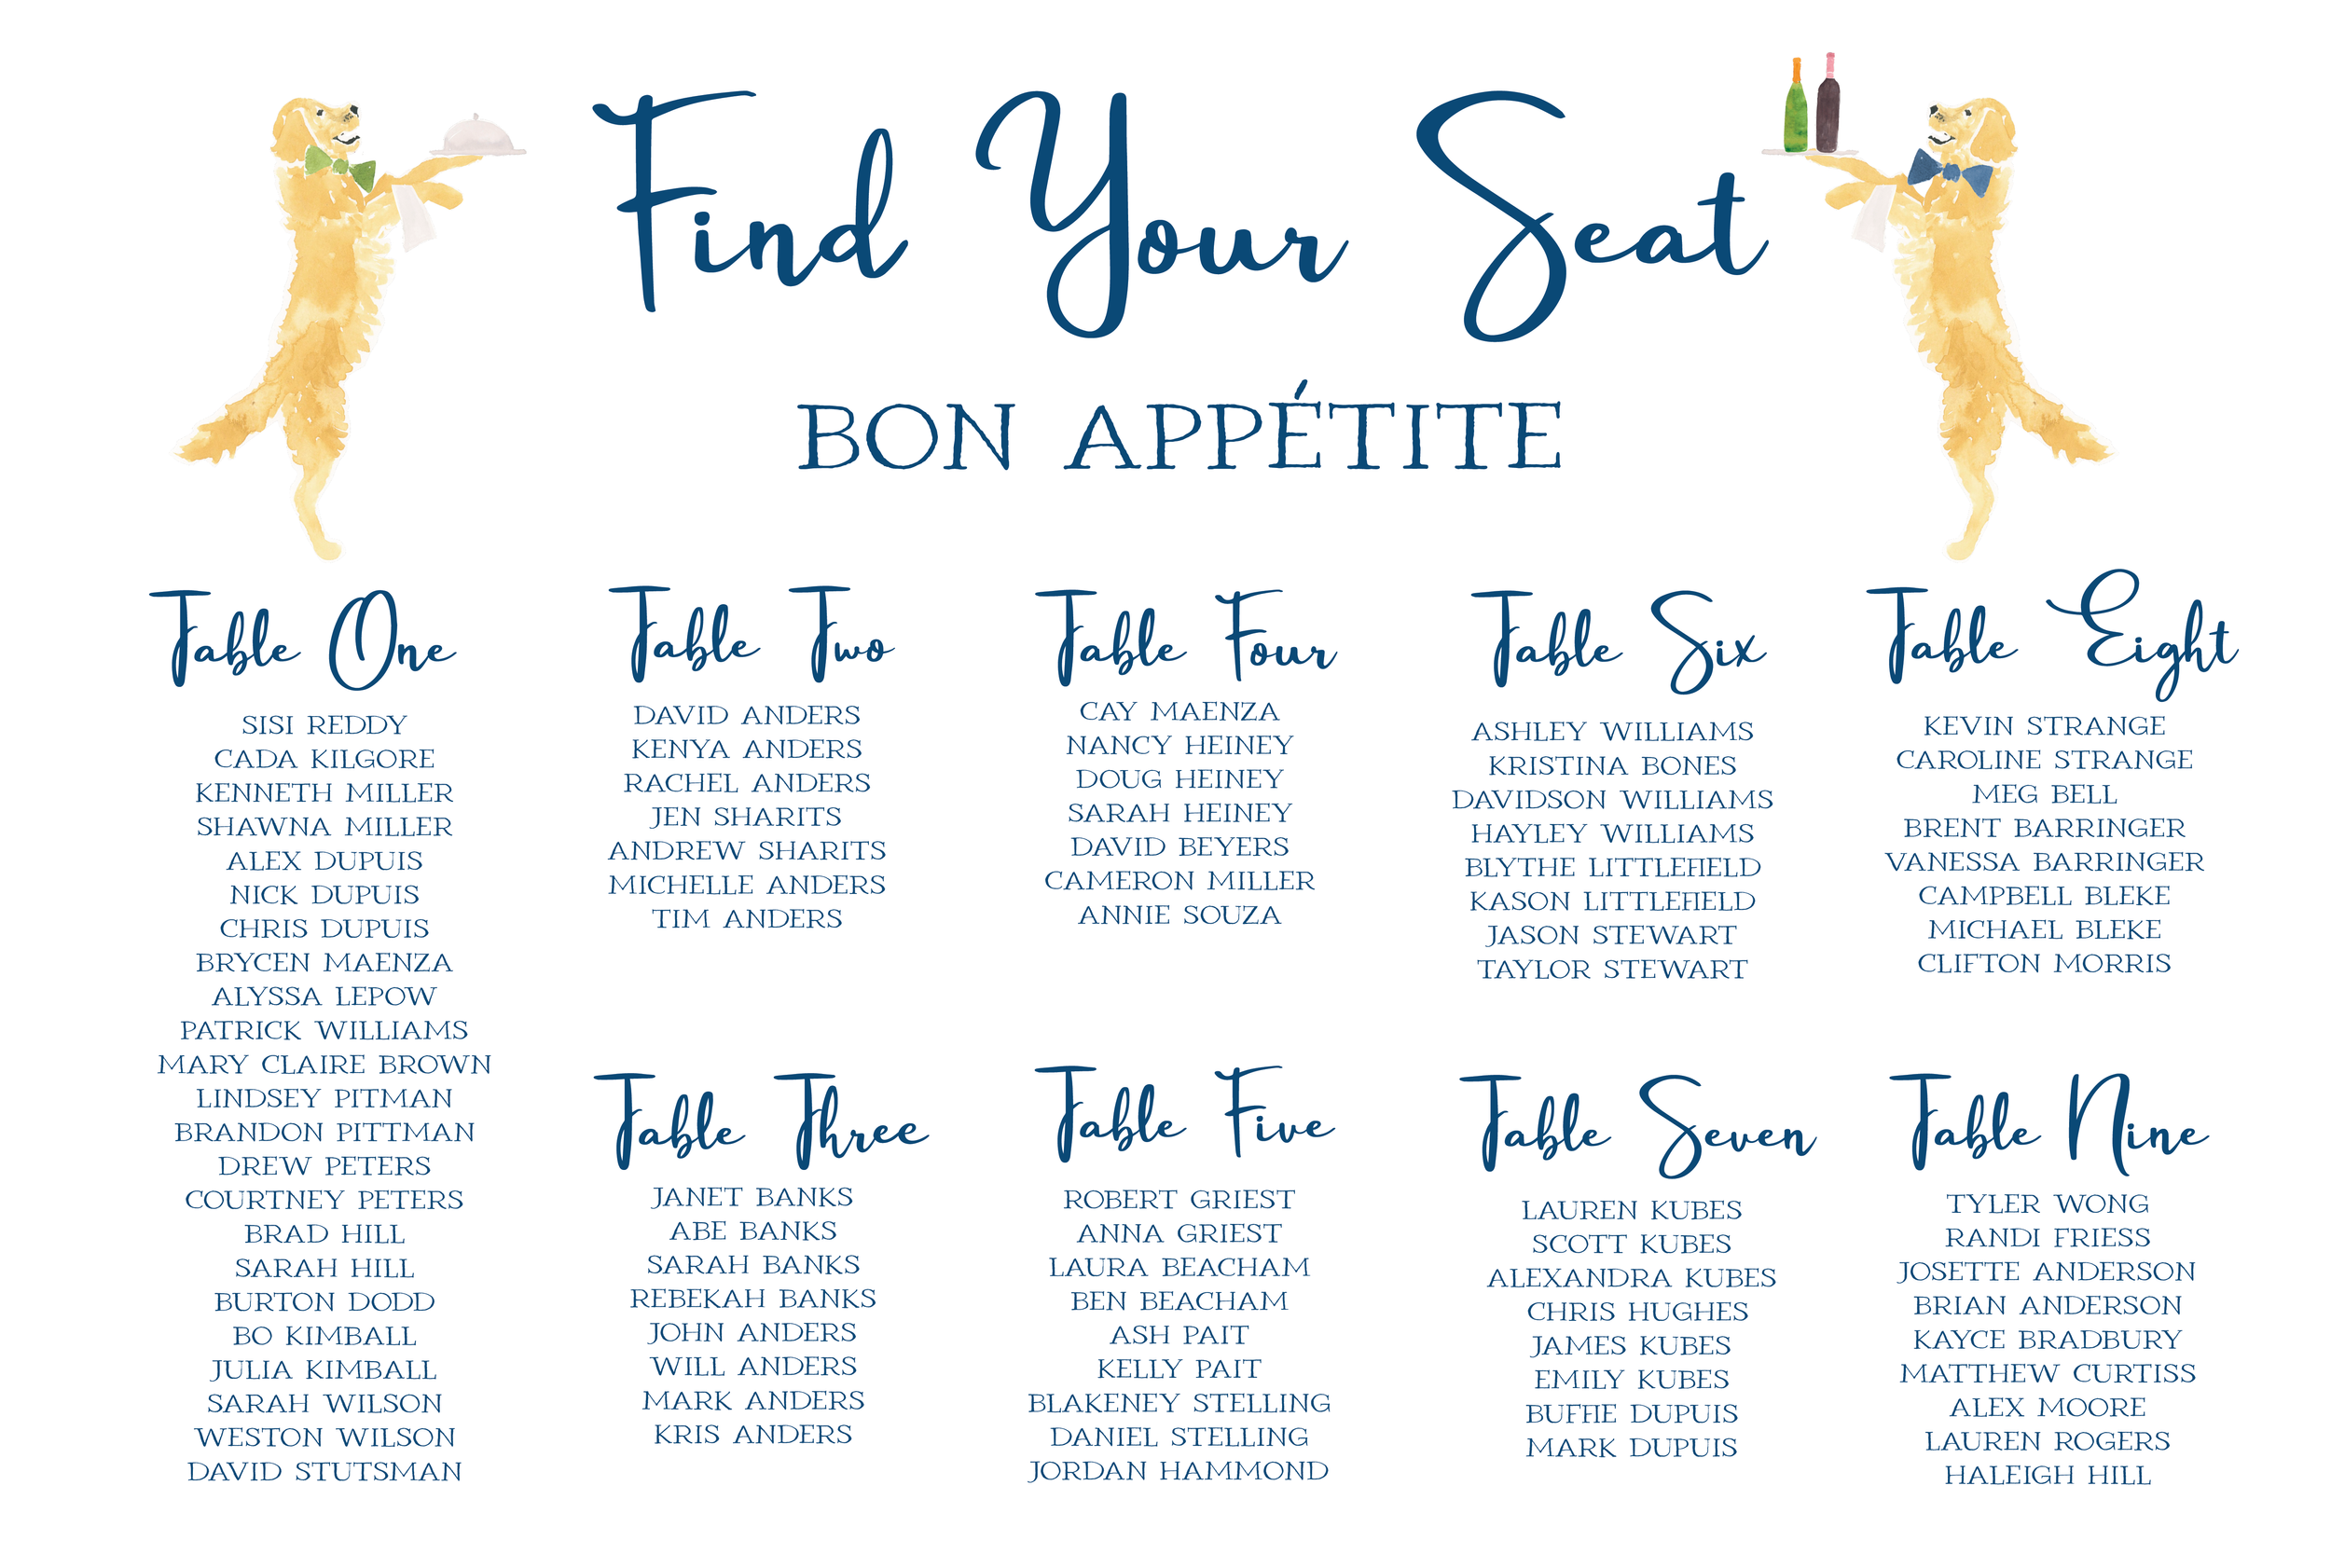 Find Your Seat
BON APPÉTITE
Table One
SISI REDDY
CADA KILGORE
KENNETH MILLER
SHAWNA MILLER
ALEX DUPUIS
NICK DUPUIS
CHRIS DUPUIS
BRYCEN MAENZA
ALYSSA LEPOW
PATRICK WILLIAMS
MARY CLAIRE BROWN
LINDSEY PITMAN
BRANDON PITTMAN
DREW PETERS
COURTNEY PETERS
BRAD HILL
SARAH HILL
BURTON DODD
BO KIMBALL
JULIA KIMBALL
SARAH WILSON
WESTON WILSON
DAVID STUTSMAN
Table Two
DAVID ANDERS
KENYA ANDERS
RACHEL ANDERS
JEN SHARITS
ANDREW SHARITS
MICHELLE ANDERS
TIM ANDERS
Table Three
JANET BANKS
ABE BANKS
SARAH BANKS
REBEKAH BANKS
JOHN ANDERS
WILL ANDERS
MARK ANDERS
KRIS ANDERS
Table Four
CAY MAENZA
NANCY HEINEY
DOUG HEINEY
SARAH HEINEY
DAVID BEYERS
CAMERON MILLER
ANNIE SOUZA
Table Five
ROBERT GRIEST
ANNA GRIEST
LAURA BEACHAM
BEN BEACHAM
ASH PAIT
KELLY PAIT
BLAKENEY STELLING
DANIEL STELLING
JORDAN HAMMOND
Table Six
ASHLEY WILLIAMS
KRISTINA BONES
DAVIDSON WILLIAMS
HAYLEY WILLIAMS
BLYTHE LITTLEFIELD
KASON LITTLEFIELD
JASON STEWART
TAYLOR STEWART
Table Seven
LAUREN KUBES
SCOTT KUBES
ALEXANDRA KUBES
CHRIS HUGHES
JAMES KUBES
EMILY KUBES
BUFFIE DUPUIS
MARK DUPUIS
Table Eight
KEVIN STRANGE
CAROLINE STRANGE
MEG BELL
BRENT BARRINGER
VANESSA BARRINGER
CAMPBELL BLEKE
MICHAEL BLEKE
CLIFTON MORRIS
Table Nine
TYLER WONG
RANDI FRIESS
JOSETTE ANDERSON
BRIAN ANDERSON
KAYCE BRADBURY
MATTHEW CURTISS
ALEX MOORE
LAUREN ROGERS
HALEIGH HILL